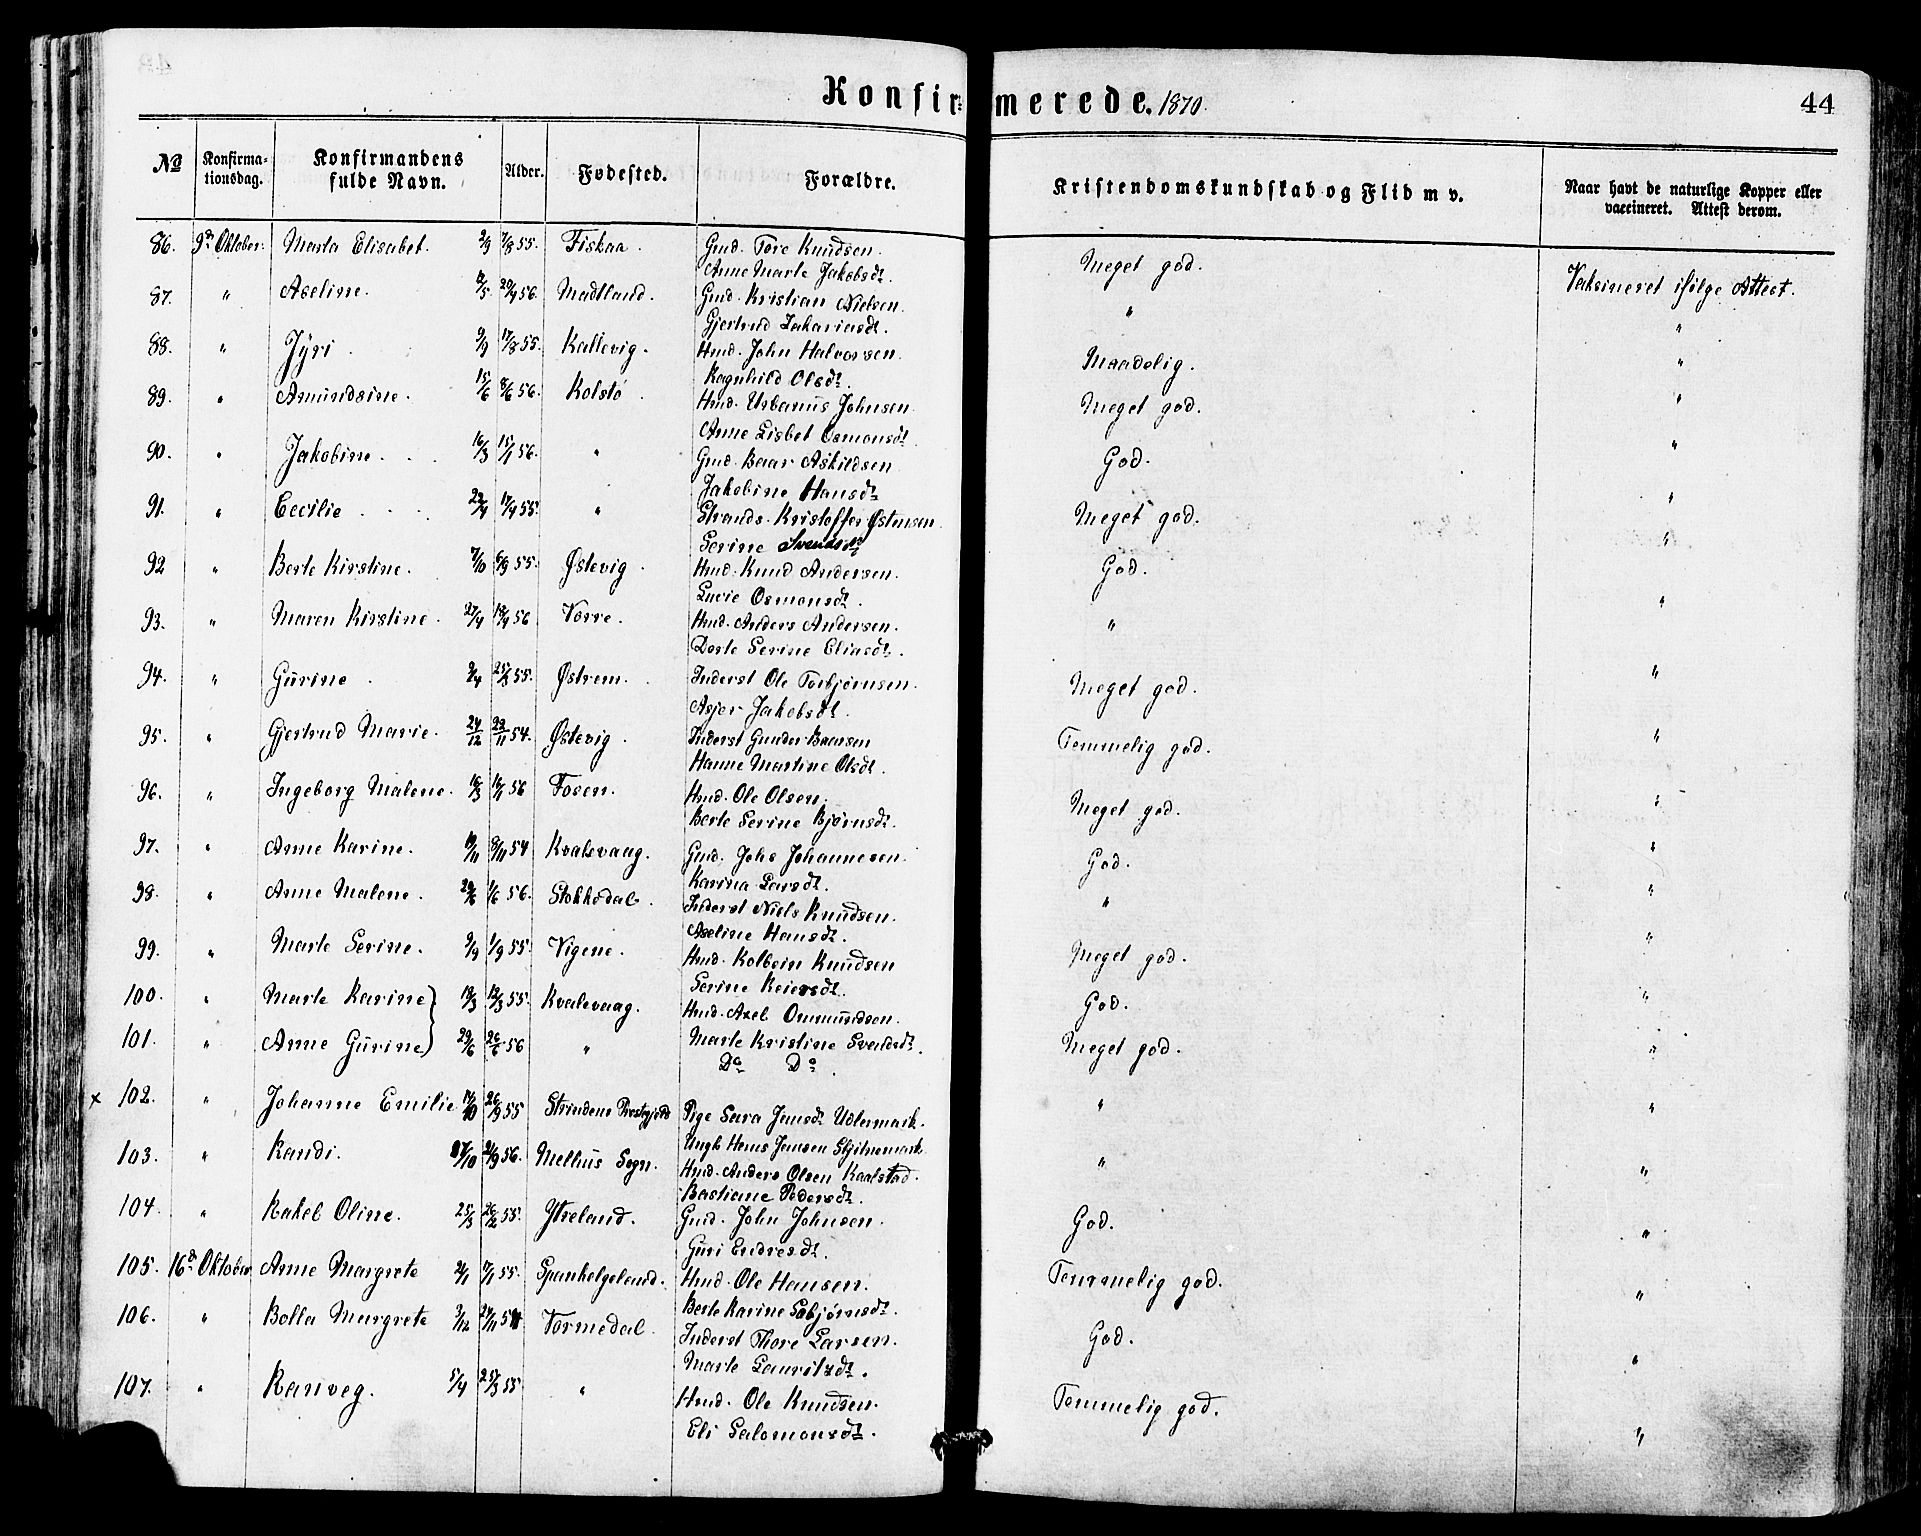 Konfirmerede. 1870. 44
No Konfirmationsdag. Konfirmandens fulde Navn. Alder. Fødested. Forældre. Kristendomskundskab og Flid m v. Naar havt de naturlige Kopper eller vaccineret. Attest derom.
86. 9de Oktober. Marta Elisabet. 2/9 7/8 55. Fiskaa. Gmd. Tore Knudsen. Meget god. Vaksineret ifølge Attest.
Anne Marte Jakobsdt.
87. " Aseline. 12/5 20/4 56. Madtland. Gmd. Kristian Nielsen. " "
Gjertrud Zakariasdt.
88. " Jÿri. 9/9 17/8 55. Kallevig. Hmd. John Halvorsen. Maadelig. "
Ragnhild Olsdt.
89. " Amundsine. 15/6 8/6 56. Kolstø. Hmd. Urbanus Johnsen. Meget god. "
Anne Lisbet Osmonsdt.
90. " Jakobine. 16/3 15/1 56. " Gmd. Baar Askildsen. God. "
Jakobine Hansdt.
91. " Cecilie 22/4 17/4 55. " Strands. Kristoffer Østensen. Meget god. "
Serine Svendsdt.
92 " Berte Kirstine. 7/10 6/9 55. Østevig. Hmd. Knud Andersen. God. "
Lucie Osmonsdt.
93. " Maren Kirstine. 27/4 18/4 56 Vorre. Hmd. Anders Andersen. " "
Dorte Serine Eliasdt.
94. " Gurine. 9/4 25/3 55. Østrem. Inderst Ole Torbjørnsen. Meget god. "
Asjer Jakobsdt.
95. " Gjertrud Marie. 24/12 22/11 54. Østevig. Inderst Gunder Baarsen Temmelig god. "
Hanne Martine Olsdt.
96. " Ingeborg Malene. 16/3 16/1 56 Fosen. Hmd. Ole Olsen. Meget god. "
Berte Serine Bjørnsdt.
97. " Anne Karine. 19/11 9/11 54 Kvalevaag. Gmd. Johs Johannesen. God. "
Karina Larsdt.
98. " Anne Malene. 29/6 1/6 56. Stokkedal. Inderst Niels Knudsen. " "
Aseline Hansdt.
99. " Marte Serine. 9/9 1/9 55. Vigene. Hmd. Kolbein Knudsen Meget god. "
Serine Reiersdt.
100. " Marte Karine 19/3 12/3 55. Kvalevaag. Hmd. Axel Ommundsen. God. "
Marte Kristine Svendsdt.
101. " Anne Gurine 29/6 26/6 56 " Do Do. Meget god. "
x 102. " Johanne Emilie 14/10 26/9 55 Strindens Prestegjeld Pige Sara Jansdt Udlermark. " "
Ungk Hans Jansen Stjitnemark.
103. " Randi. 17/10 2/9 56. Melhus Sogn. Hmd. Anders Olsen Kaalstad. " "
Bastiane Pedersdt.
104. " Rakel Oline. 25/3 26/2 55. Ytreland. Gmd. John Johnsen. God. "
Guri Endresdt.
105. 16de Oktober Anne Margrete 21/1 17/1 55. Spanhelgeland. Hmd. Ole Hansen. Temmelig god. "
Berte Karine Sebjørnsdt.
106. " Bolla Margrete 3/12 24/11 54 Vormedal. Inderst Thore Larsen. God. "
Marte Lauritzdt.
107. " Ranveg. 5/4 25/3 55 " Hmd. Ole Knudsen. Temmelig god. "
Eli Salomonsdt.